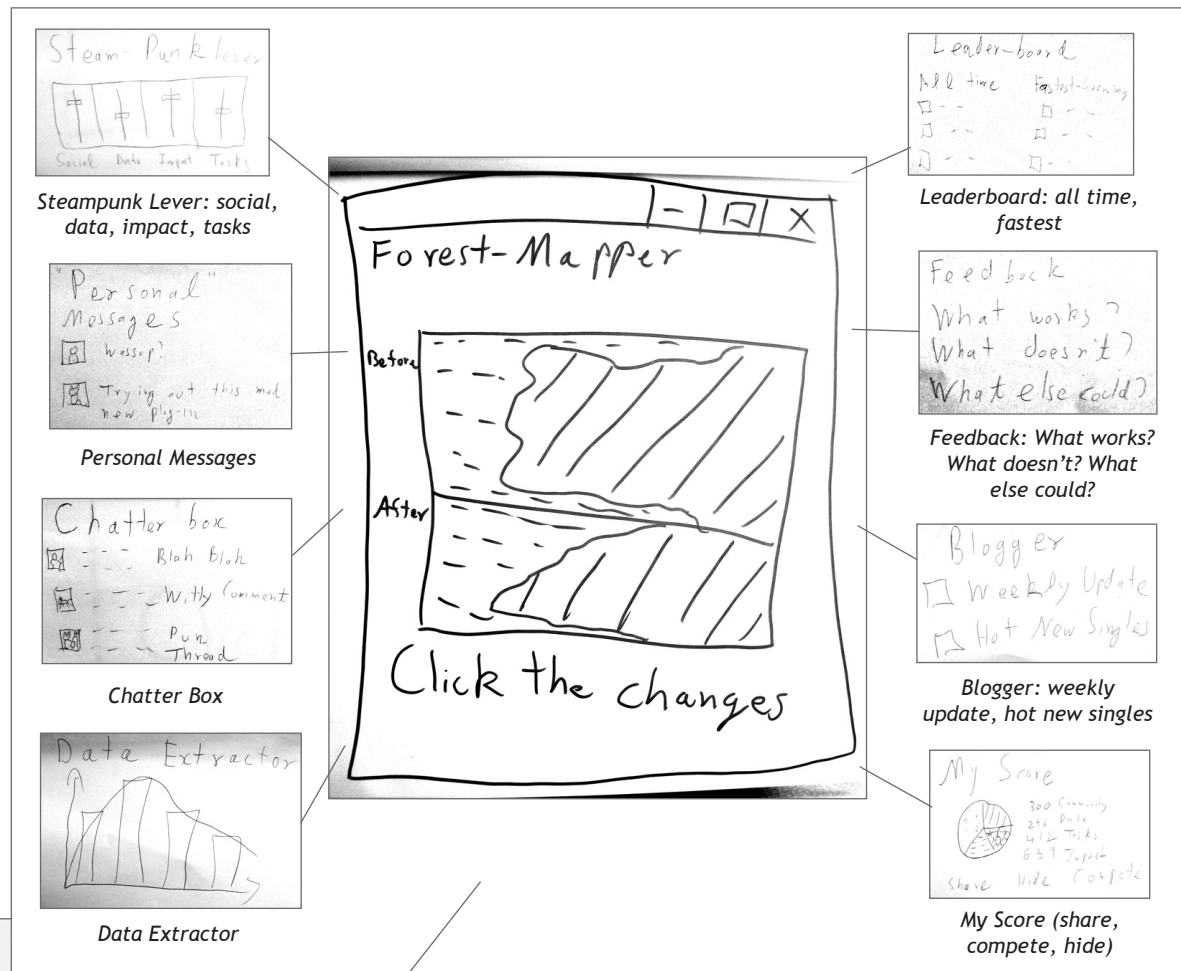 Steam-Punk lever
Social Data Impact Tasks
Steampunk Lever: social,
data, impact, tasks
"Personal"
Messages
Wassup?
Trying out this mad
new plug-in
Personal Messages
Chatter box
Blah Blah
Witty Comment
Pun
Thread
Chatter Box
Data Extractor
Data Extractor
Forest-Mapper
Before
After
Click the changes
Leader-board
All time Fastest-Growing
Leaderboard: all time,
fastest
Feedback
What works?
What doesn't?
What else could?
Feedback: What works?
What doesn’t? What
else could?
Blogger
Weekly Update
Hot New Singles
Blogger: weekly
update, hot new singles
My Score
300 Community
246 Data
412 Tasks
639 Impact
Share Hide Compete
My Score (share,
compete, hide)